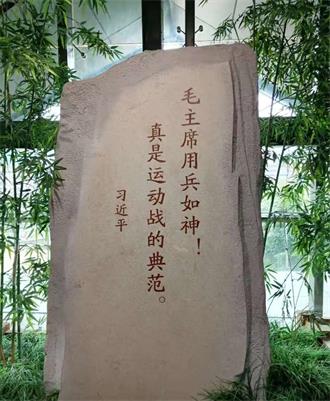 毛主席用兵如神！
真是运动战的典范。
习近平